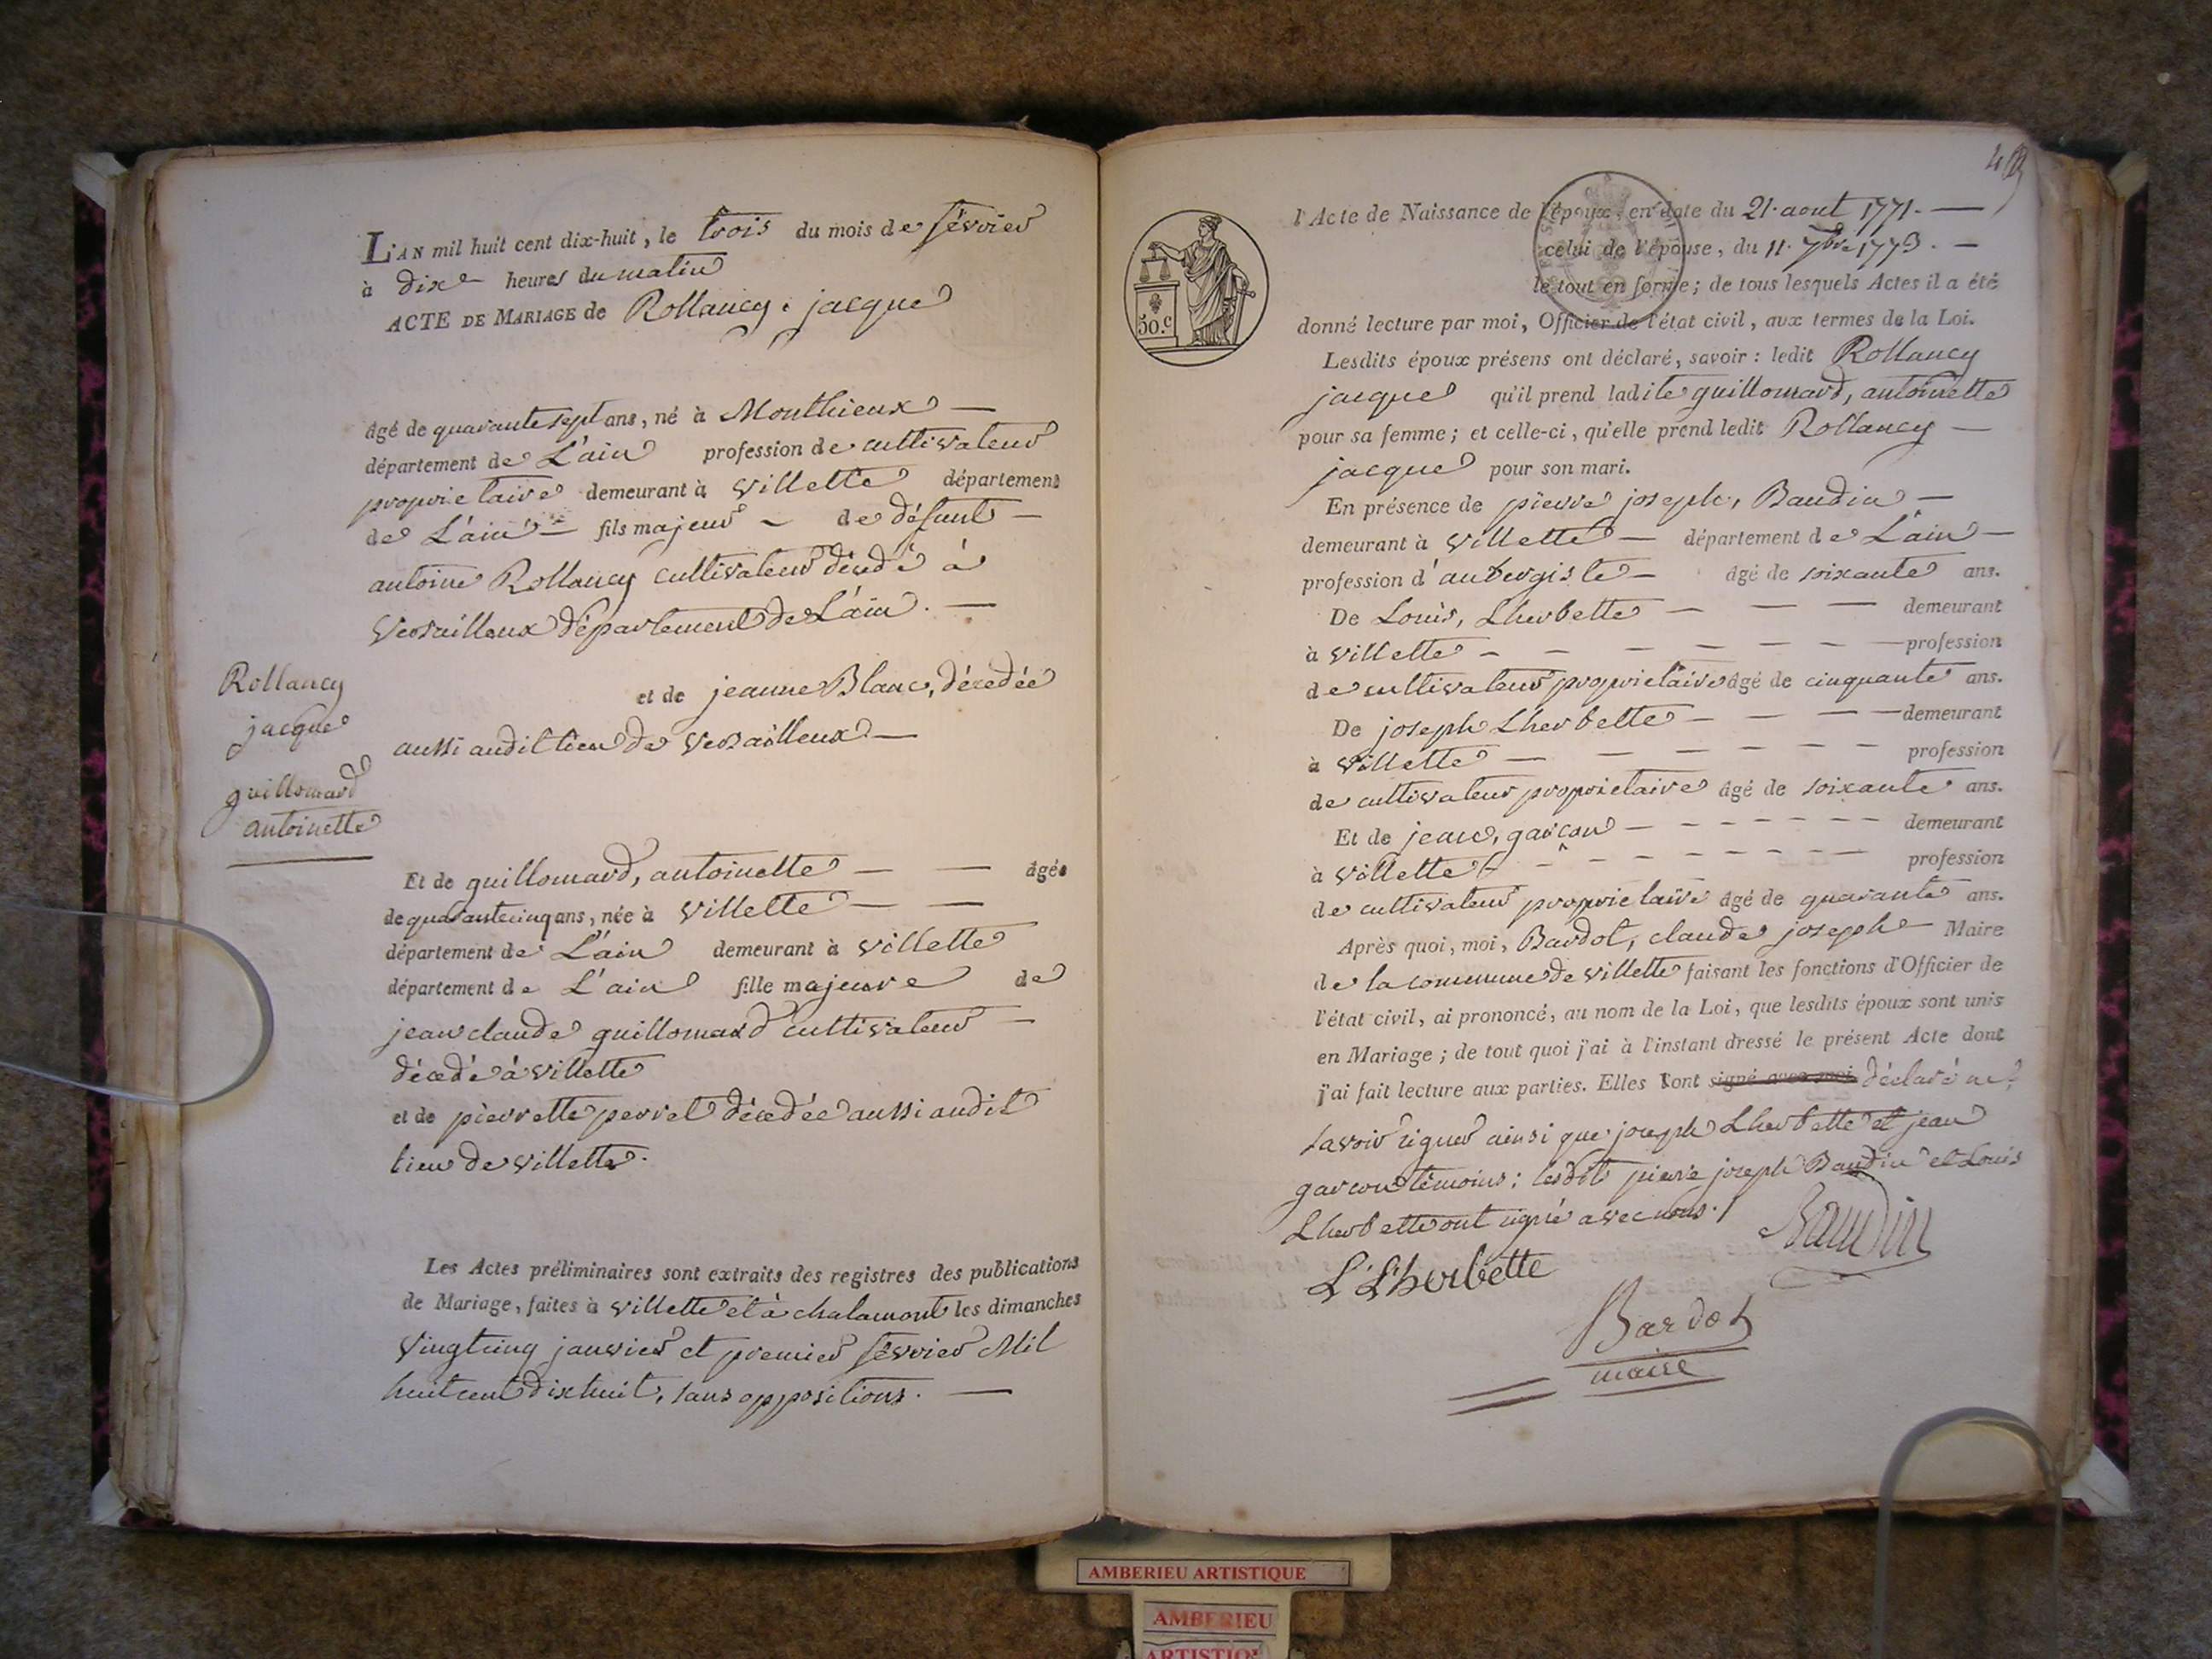 L'AN mil huit cent dix-huit, le trois du mois de février
à dix heures du matin
ACTE DE MARIAGE de Rollancy. jacque
âgé de quarante sept ans, né à Monthieux —
département de L'ain profession de cultivateur
proprietaire demeurant à Villette département
de L'ain — fils majeur – de défunt —
antoine Rollancy cultivateur décédé à
Versailleux département de L'ain. —
Rollancy
jacque
guillomard
antoinette
et de jeanne Blanc, décedée
aussi audit lieu de Versailleux —
Et de guillomard, antoinette — — âgée
de quarante cinq ans, née à Villette — —
département de L'ain demeurant à Villette
département de L'ain fille majeure de
jean claude guillomard cultivateur —
décédé à Villette
et de pierrette perret décedée aussi audit
lieu de Villette.
Les Actes préliminaires sont extraits des registres des publications
de Mariage, faites à Villette et à chalamont les dimanches
Vingt cinq janvier et premier février Mil
huit cent dix huit, sans oppositions. —
50.c
l'Acte de Naissance de l'époux, en date du 21. aout 1771. —
celui de l'épouse, du 11. 7bre 1773. —
le tout en forme; de tous lesquels Actes il a été
donné lecture par moi, Officier de l'état civil, aux termes de la Loi.
Lesdits époux présens ont déclaré, savoir: ledit Rollancy
jacque qu'il prend ladite guillomard, antoinette
pour sa femme; et celle-ci, qu'elle prend ledit Rollancy —
jacque pour son mari.
En présence de pierre joseph, Baudin —
demeurant à Villette — département de L'ain —
profession d'aubergiste — âgé de soixante ans.
De Louis, Lherbette — — — demeurant
à Villette – – – – – – — profession
de cultivateur proprietaire âgé de cinquante ans.
De joseph Lherbette — — — — demeurant
à Villette — — — — — — profession
de cultivateur proprietaire âgé de soixante ans.
Et de jean, garcon — – – – – – demeurant
à Villette – – – – – – – — profession
de cultivateur proprietaire âgé de quarante ans.
Après quoi, moi, Bardot, claude joseph — Maire
de la commune de Villette faisant les fonctions d'Officier de
l'état civil, ai prononcé, au nom de la Loi, que lesdits époux sont unis
en Mariage; de tout quoi j'ai à l'instant dressé le présent Acte dont
j'ai fait lecture aux parties. Elles ont signé avec moi déclaré ne
savoir signer ainsi que joseph Lherbette et jean
garcon témoins; lesdits pierre joseph Baudin et Louis
Lherbette ont signé avec nous.
Baudin
L Lherbette
Bardot
maire
AMBERIEU ARTISTIQUE
AMBERIEU
ARTISTIQ